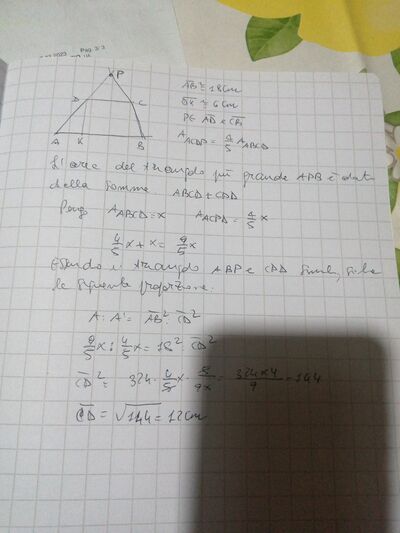 Pag 2/2
P
D C
A K B
AB = 18cm
DK = 6cm
P∈ AD e CB
A_ACDP = 4/5 A_ABCD
L'area del triangolo più grande APB è data
della somma ABCD + CPD
Pongo A_ABCD = x A_ACPD = 4/5 x
4/5 x + x = 9/5 x
Essendo i triangolo ABP e CPD simili,
la seguente proporzione:
A : A' = AB² : CD²
9/5 x : 4/5 x = 18² : CD²
CD² = 324 · 4/5 x · 5/9x = 324 x 4/9 = 144
CD = √144 = 12cm